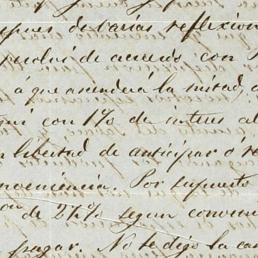 spues de varias reflexion
resolví de acuerdo con
á que ascenderá la mitad,
con 1% de interes al
libertad de anticipar ó re
nveniencia. Por supuesto
de 2½% segun convini
pagar. No te digo la can